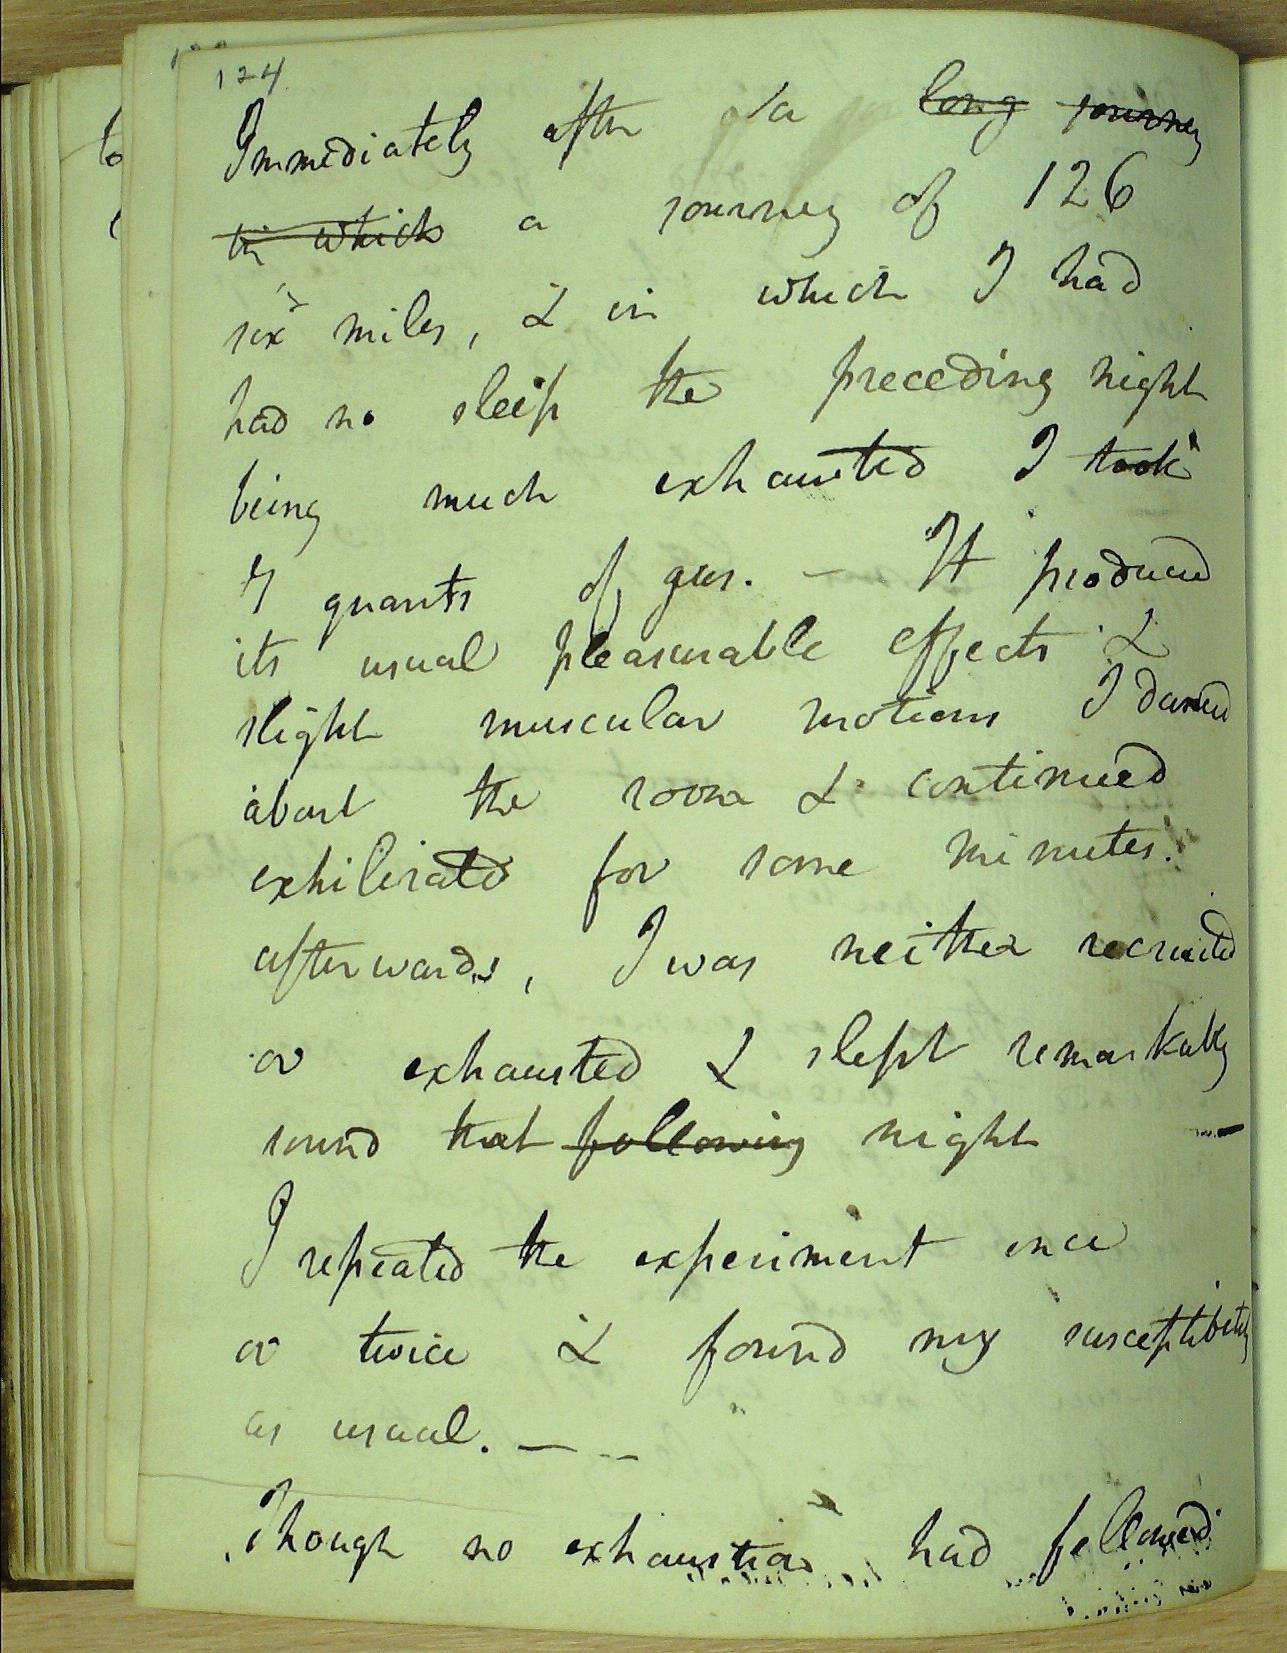 124
Immediately after a long journey
in which a journey of 126
six miles, & in which I had
had no sleep the preceding night
being much exhausted I took
7 quarts of gas. — It produced
its usual pleasurable effects &
slight muscular motions I danced
about the room & continued
exhilirated for some minutes.
afterwards, I was neither recruited
or exhausted & slept remarkably
sound that following night —
I repeated the experiment once
or twice & found my susceptibility
as usual. — --
Though no exhaustion had followed